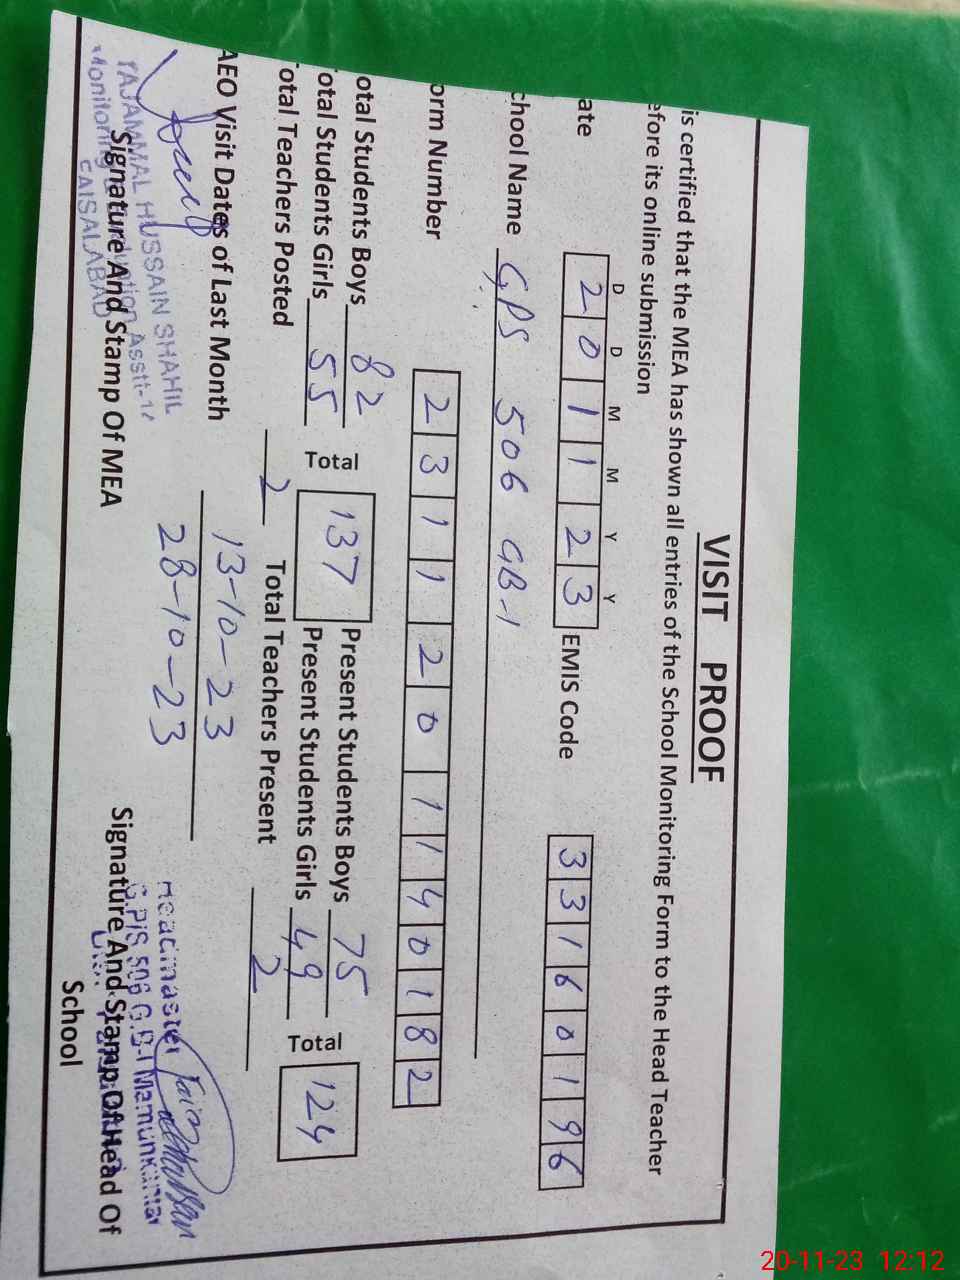 VISIT PROOF
is certified that the MEA has shown all entries of the School Monitoring Form to the Head Teacher
efore its online submission
D D M M Y Y
ate 2 0 1 1 2 3 EMIS Code 3 3 1 6 0 1 9 6
chool Name GPS 506 GB-1
orm Number 2 3 1 1 2 0 1 1 4 0 1 8 2
otal Students Boys 82 Total 137 Present Students Boys 75 Total 124
otal Students Girls 55 Present Students Girls 49
otal Teachers Posted 2 Total Teachers Present 2
AEO Visit Dates of Last Month 13-10-23
28-10-23
TAJAMMAL HUSSAIN SHAHIL
Monitoring Asstt-
FAISALABAD
Signature And Stamp Of MEA
Headmaster
G.P/S 506 G.B-I Mamunkanjan
Signature And Stamp Of Head Of
School
20-11-23 12:12